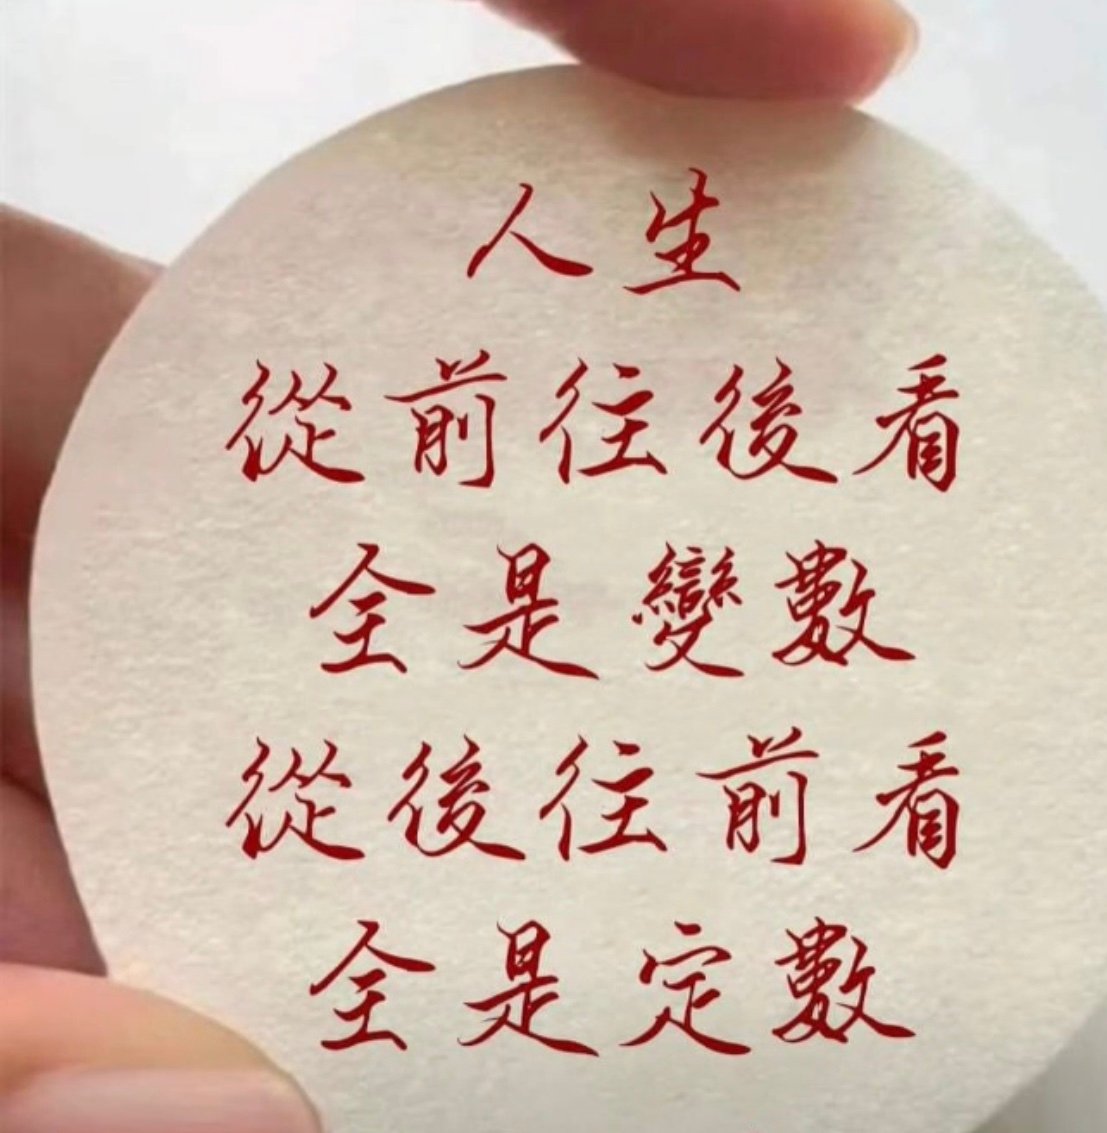 人生
從前往後看
全是變數
從後往前看
全是定數